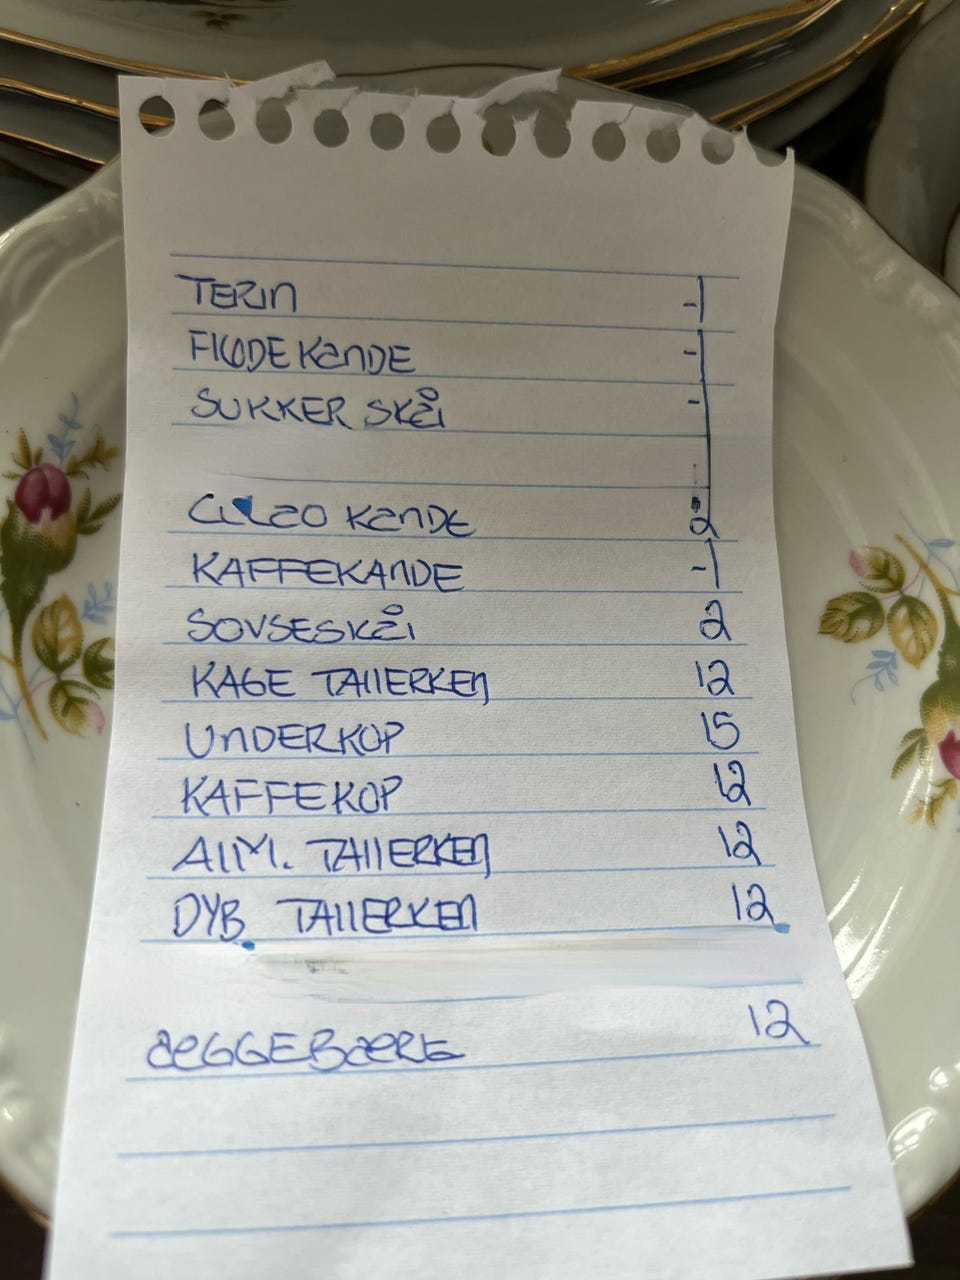 TERIN -1
FLØDEKANDE -1
SUKKER SKÅL -1
KANDE 2
KAFFEKANDE -1
SOVSESKÅL 2
KAGE TALLERKEN 12
UNDERKOP 15
KAFFEKOP 12
ALM. TALLERKEN 12
DYB. TALLERKEN 12
ÆGGEBÆRE 12